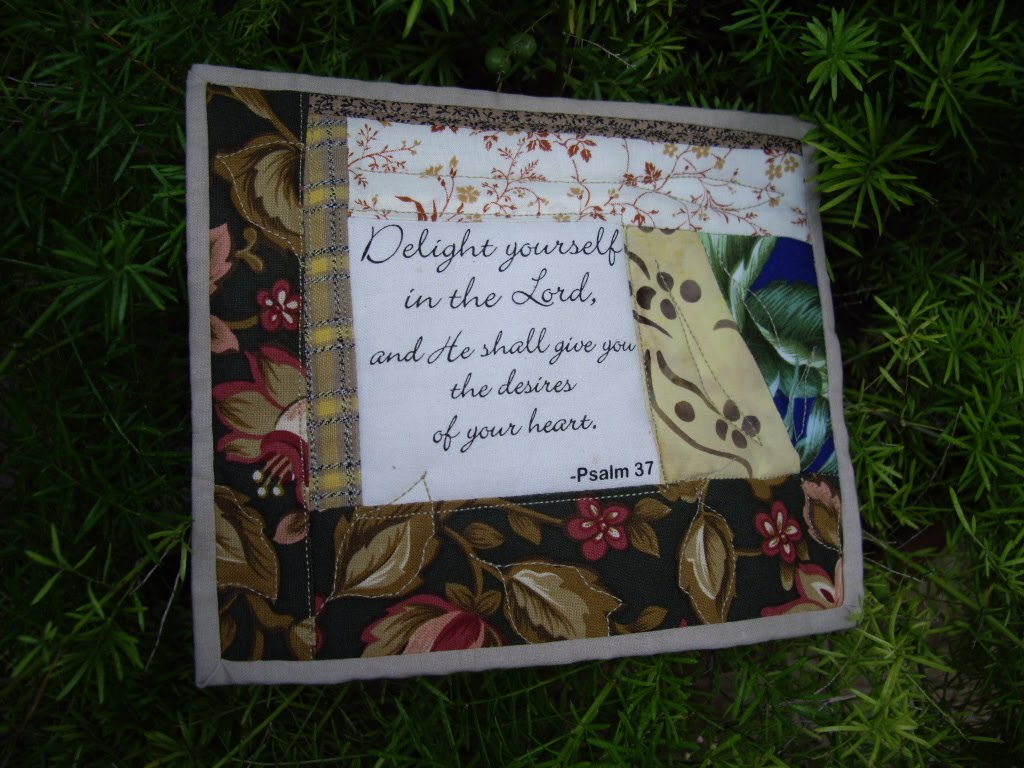 Delight yourself
in the Lord,
and He shall give you
the desires
of your heart.
-Psalm 37